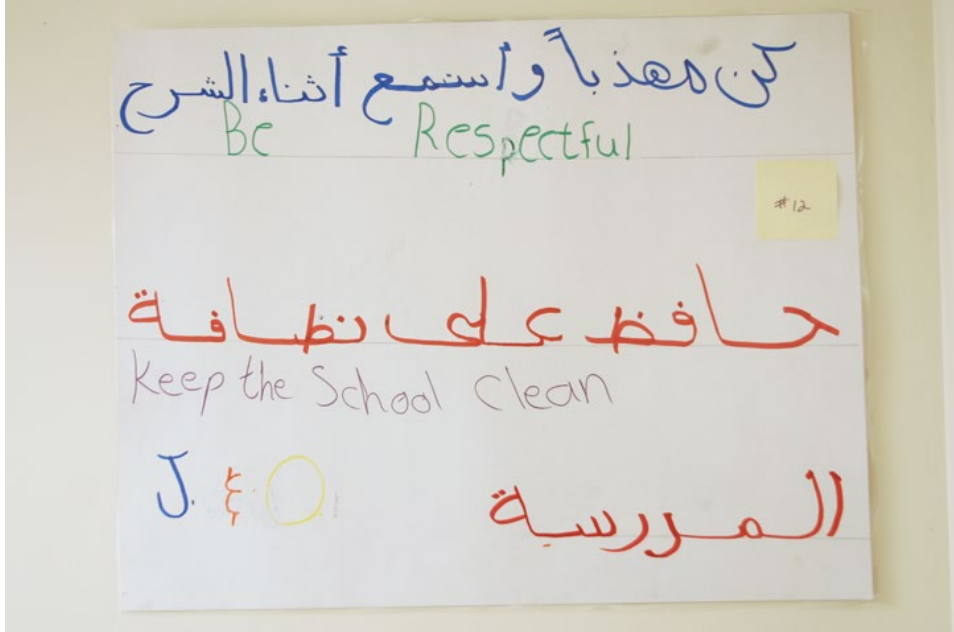 كن مهذباً وأستمع أثناء الشرح
Be Respectful
#12
حافظ على نظافة
Keep the School Clean
المدرسة
J. & O.